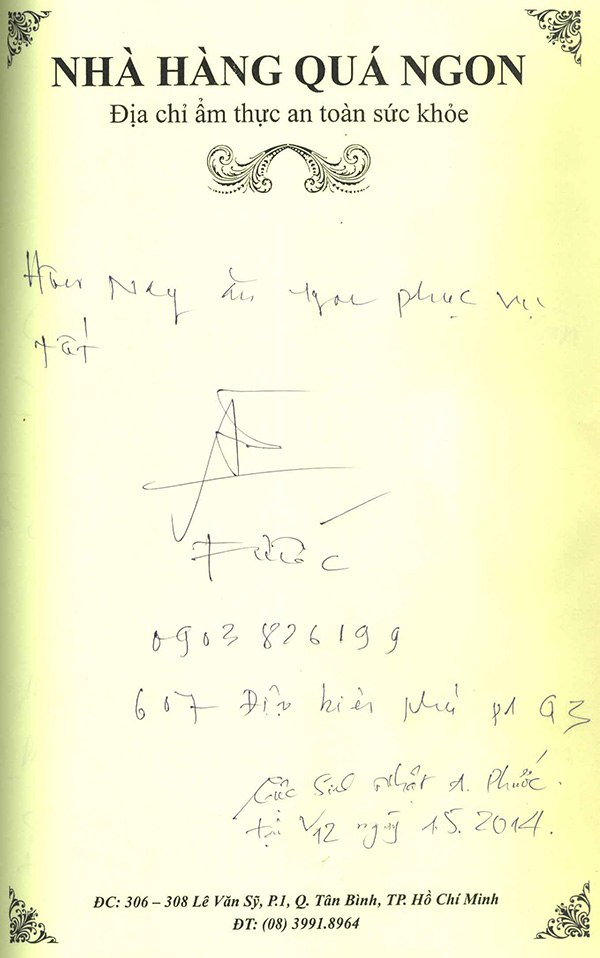 NHÀ HÀNG QUÁ NGON
Địa chỉ ẩm thực an toàn sức khỏe
Hôm Nay ăn ngon phục vụ
tốt
Phước
0903 826199
607 Điện biên phủ p1 Q3
Tiệc Sinh nhật A. Phước.
tại V12 ngày 1.5.2014.
ĐC: 306 – 308 Lê Văn Sỹ, P.1, Q. Tân Bình, TP. Hồ Chí Minh
ĐT: (08) 3991.8964